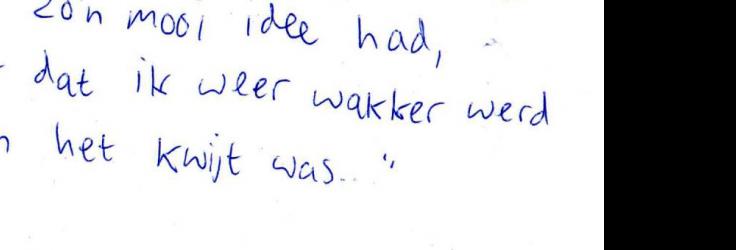 zo'n mooi idee had,
dat ik weer wakker werd
het kwijt was.. "